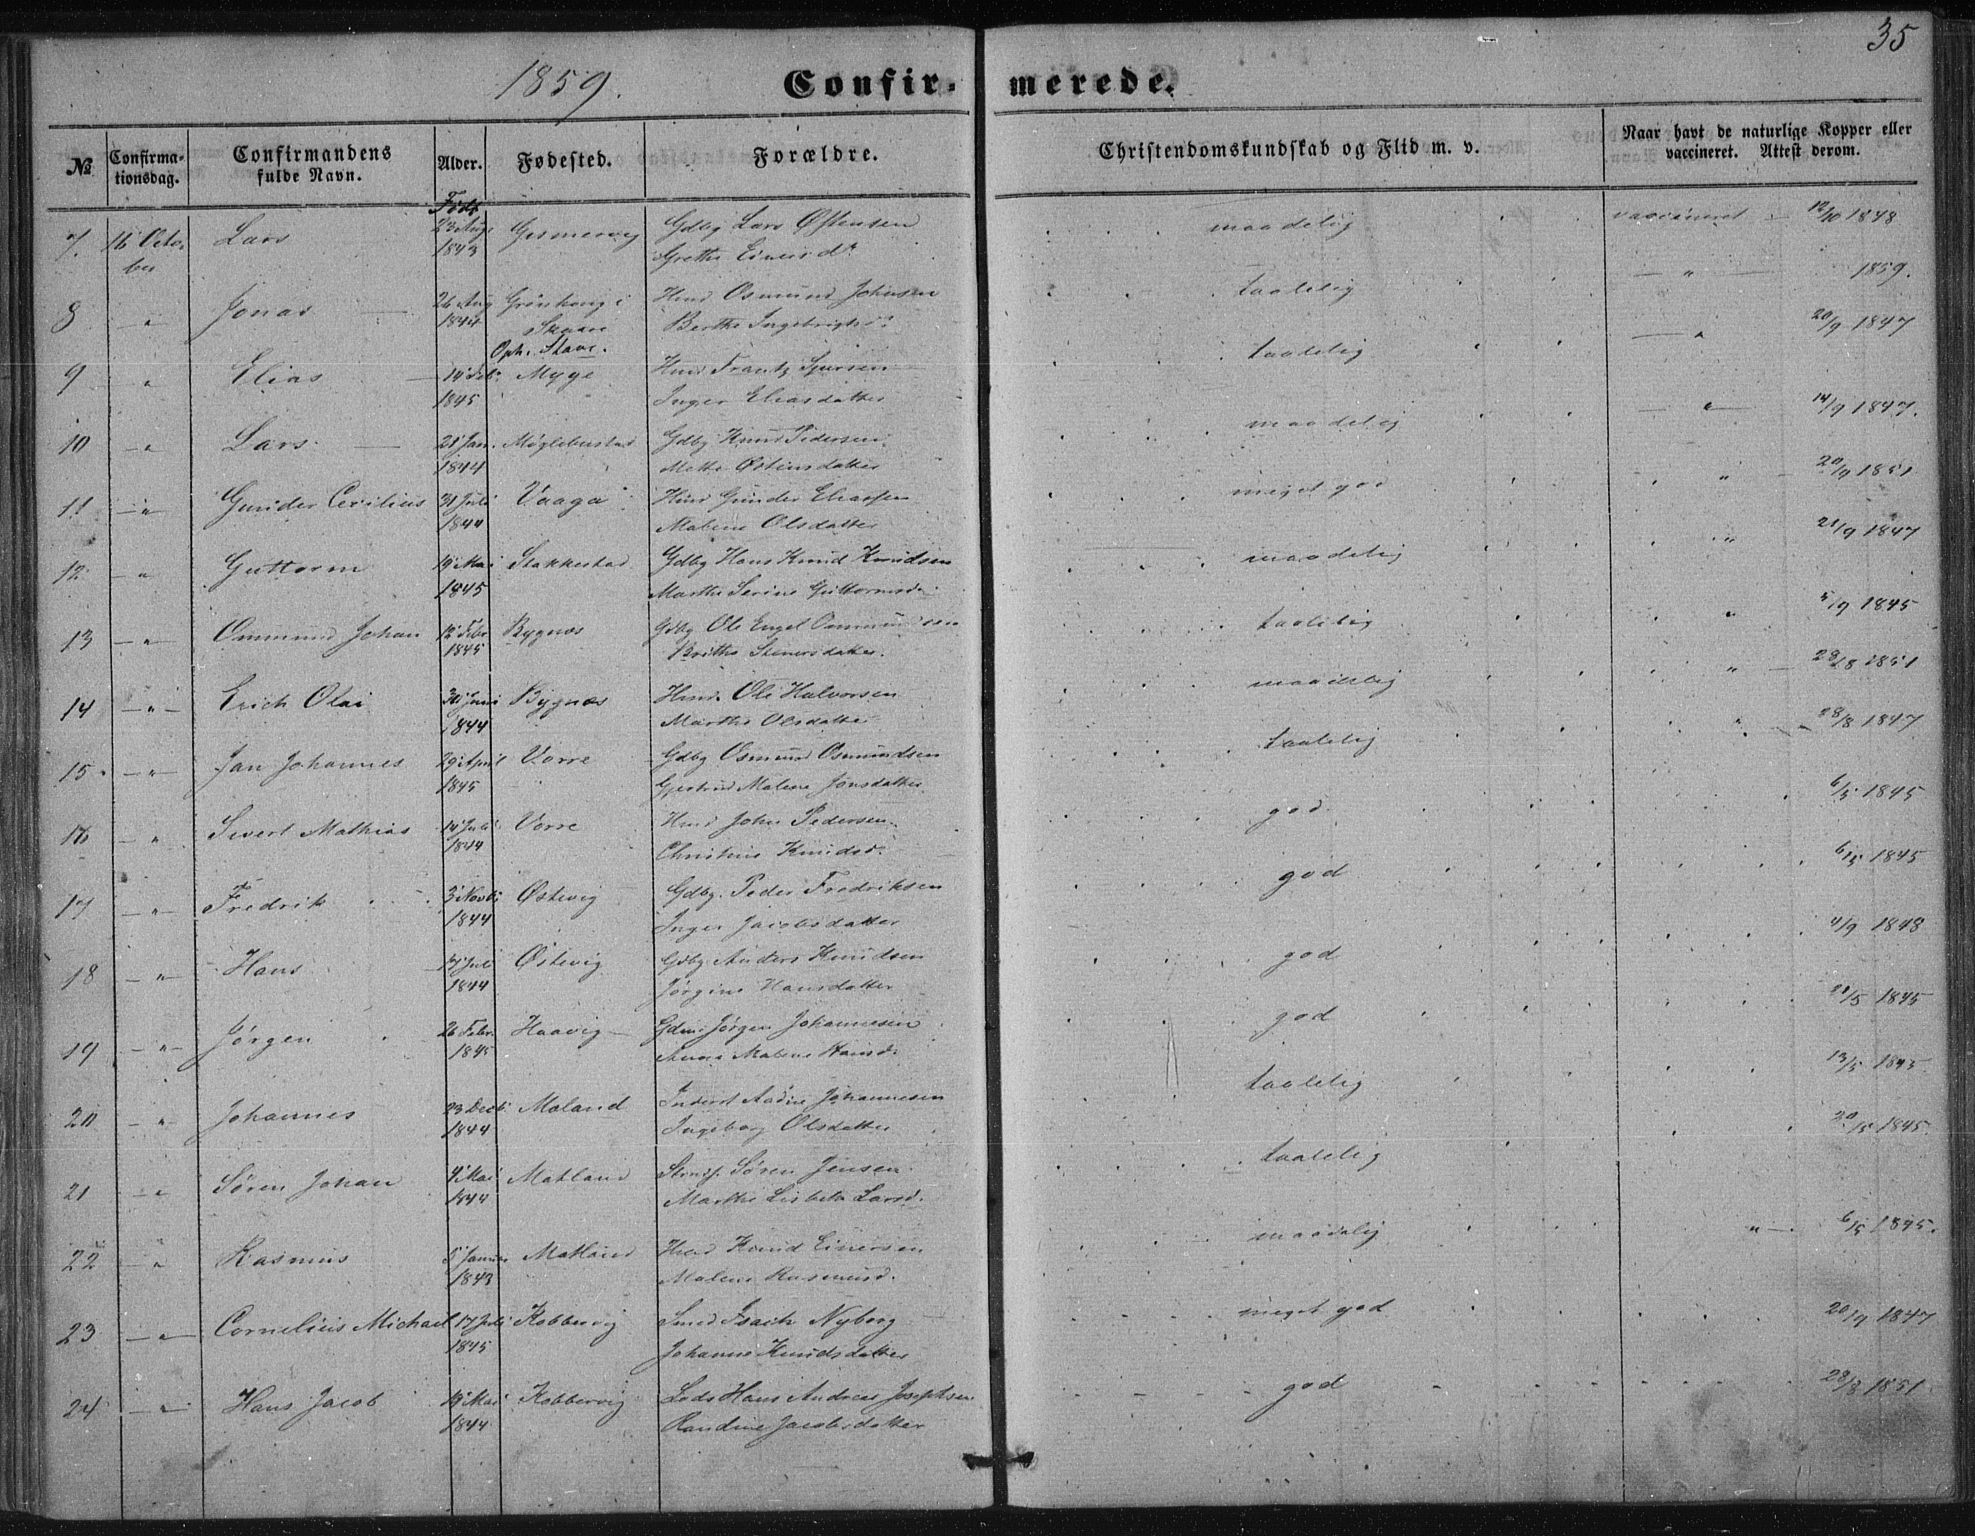 35
1859. Confirmerede.
№ Confirmationsdag. Confirmandens fulde Navn. Alder. Fødested. Forældre. Christendomskundskab og Flid m. v. Naar havt de naturlige Kopper eller vaccineret. Attest derom.
Født
7. 16 Octo- Lars 23 Aug Gdbg Lars Østensen maadelig vaccineret 12/10 1848
ber 1843 Grethe Einersd.
8 " Jonas 26 Aug Grönhoug i Huusd Osmund Johnsen taalelig — " — 1859.
1844 Skaare Berthe Ingebrigtsd.
Oph. Stave.
9 " Elias 14 Feb. Myge Huusd Frantz taalelig — " 20/9 1847
1845 Inger Eliasdatter
10 " Lars 21 Jan. Møglebustad Gdbg Knud Pedersen maadelig — " — 14/9 1847.
1844 Mette Østensdatter
11 " Gunder Cecilius 31 Juli Vaaga Huusd Gunder Eliassen meget god " 20/9 1851
1844 Malene Olsdatter
12 " Guttorm 19 Mai Stakkestad Gdbg Hans Knud Knudsen maadelig " 21/9 1847
1845 Marthe Serine Guttormsd.
13 " Osmund Johan 12 Febr Bygnes Gdbg Ole Engel Osmundsen taalelig " 5/9 1845
1845 Brithe Steinersdatter.
14 " Erich Olai 30 Juni Bygnes Huusd. Ole Halvorsen maadelig " 28/8 1851
1844 Marthe Olsdatter
15. " Jan Johannes 29 April Vorre Gdbg Osmund Osmundsen taalelig " 28/8 1847
1845 Gjertrud Malene Jonsdatter
16 " Sivert Mathias 14 Juli Vorre Huusd John Pedersen god 6/5 1845
1844 Christine Knudsd.
17 " Fredrik 3 Novb. Østevig Gdbg. Peder Fredriksen god 6/5 1845
1844 Inger Jacobsdatter
18 " Hans 17 Juli Østevig Gdbg Anders Knudsen god 4/9 1848
1844 Jørgine Hansdatter
19 " Jørgen 26 Febr. Haavig Gdm. Jørgen Johannesen god 21/5 1845
1845 Anna Malene Hansd.
20 " Johannes 23 Decb. Moland Inderst Johannesen taalelig 13/5 1845
1844 Ingeborg Olsdatter
21 " Søren Johan 4 Mai Matland Søren Jensen taalelig 20/5 1845.
1844 Marthe Lisbeth Larsd.
22 " Rasmus 5 Januar Matland Huusd Knud Einersen maadelig " 6/5 1845.
1843 Malene Rasmusd.
23 " Cornelius Michael 17 Juli Kobbervig Smed Isach Nyborg meget god 20/9 1847
1845 Johanne Knudsdatter
24 " Hans Jacob 19 Mai Kobbervig Lods Hans Andreas Josephsen god 28/8 1851
1844 Randine Jacobsdatter